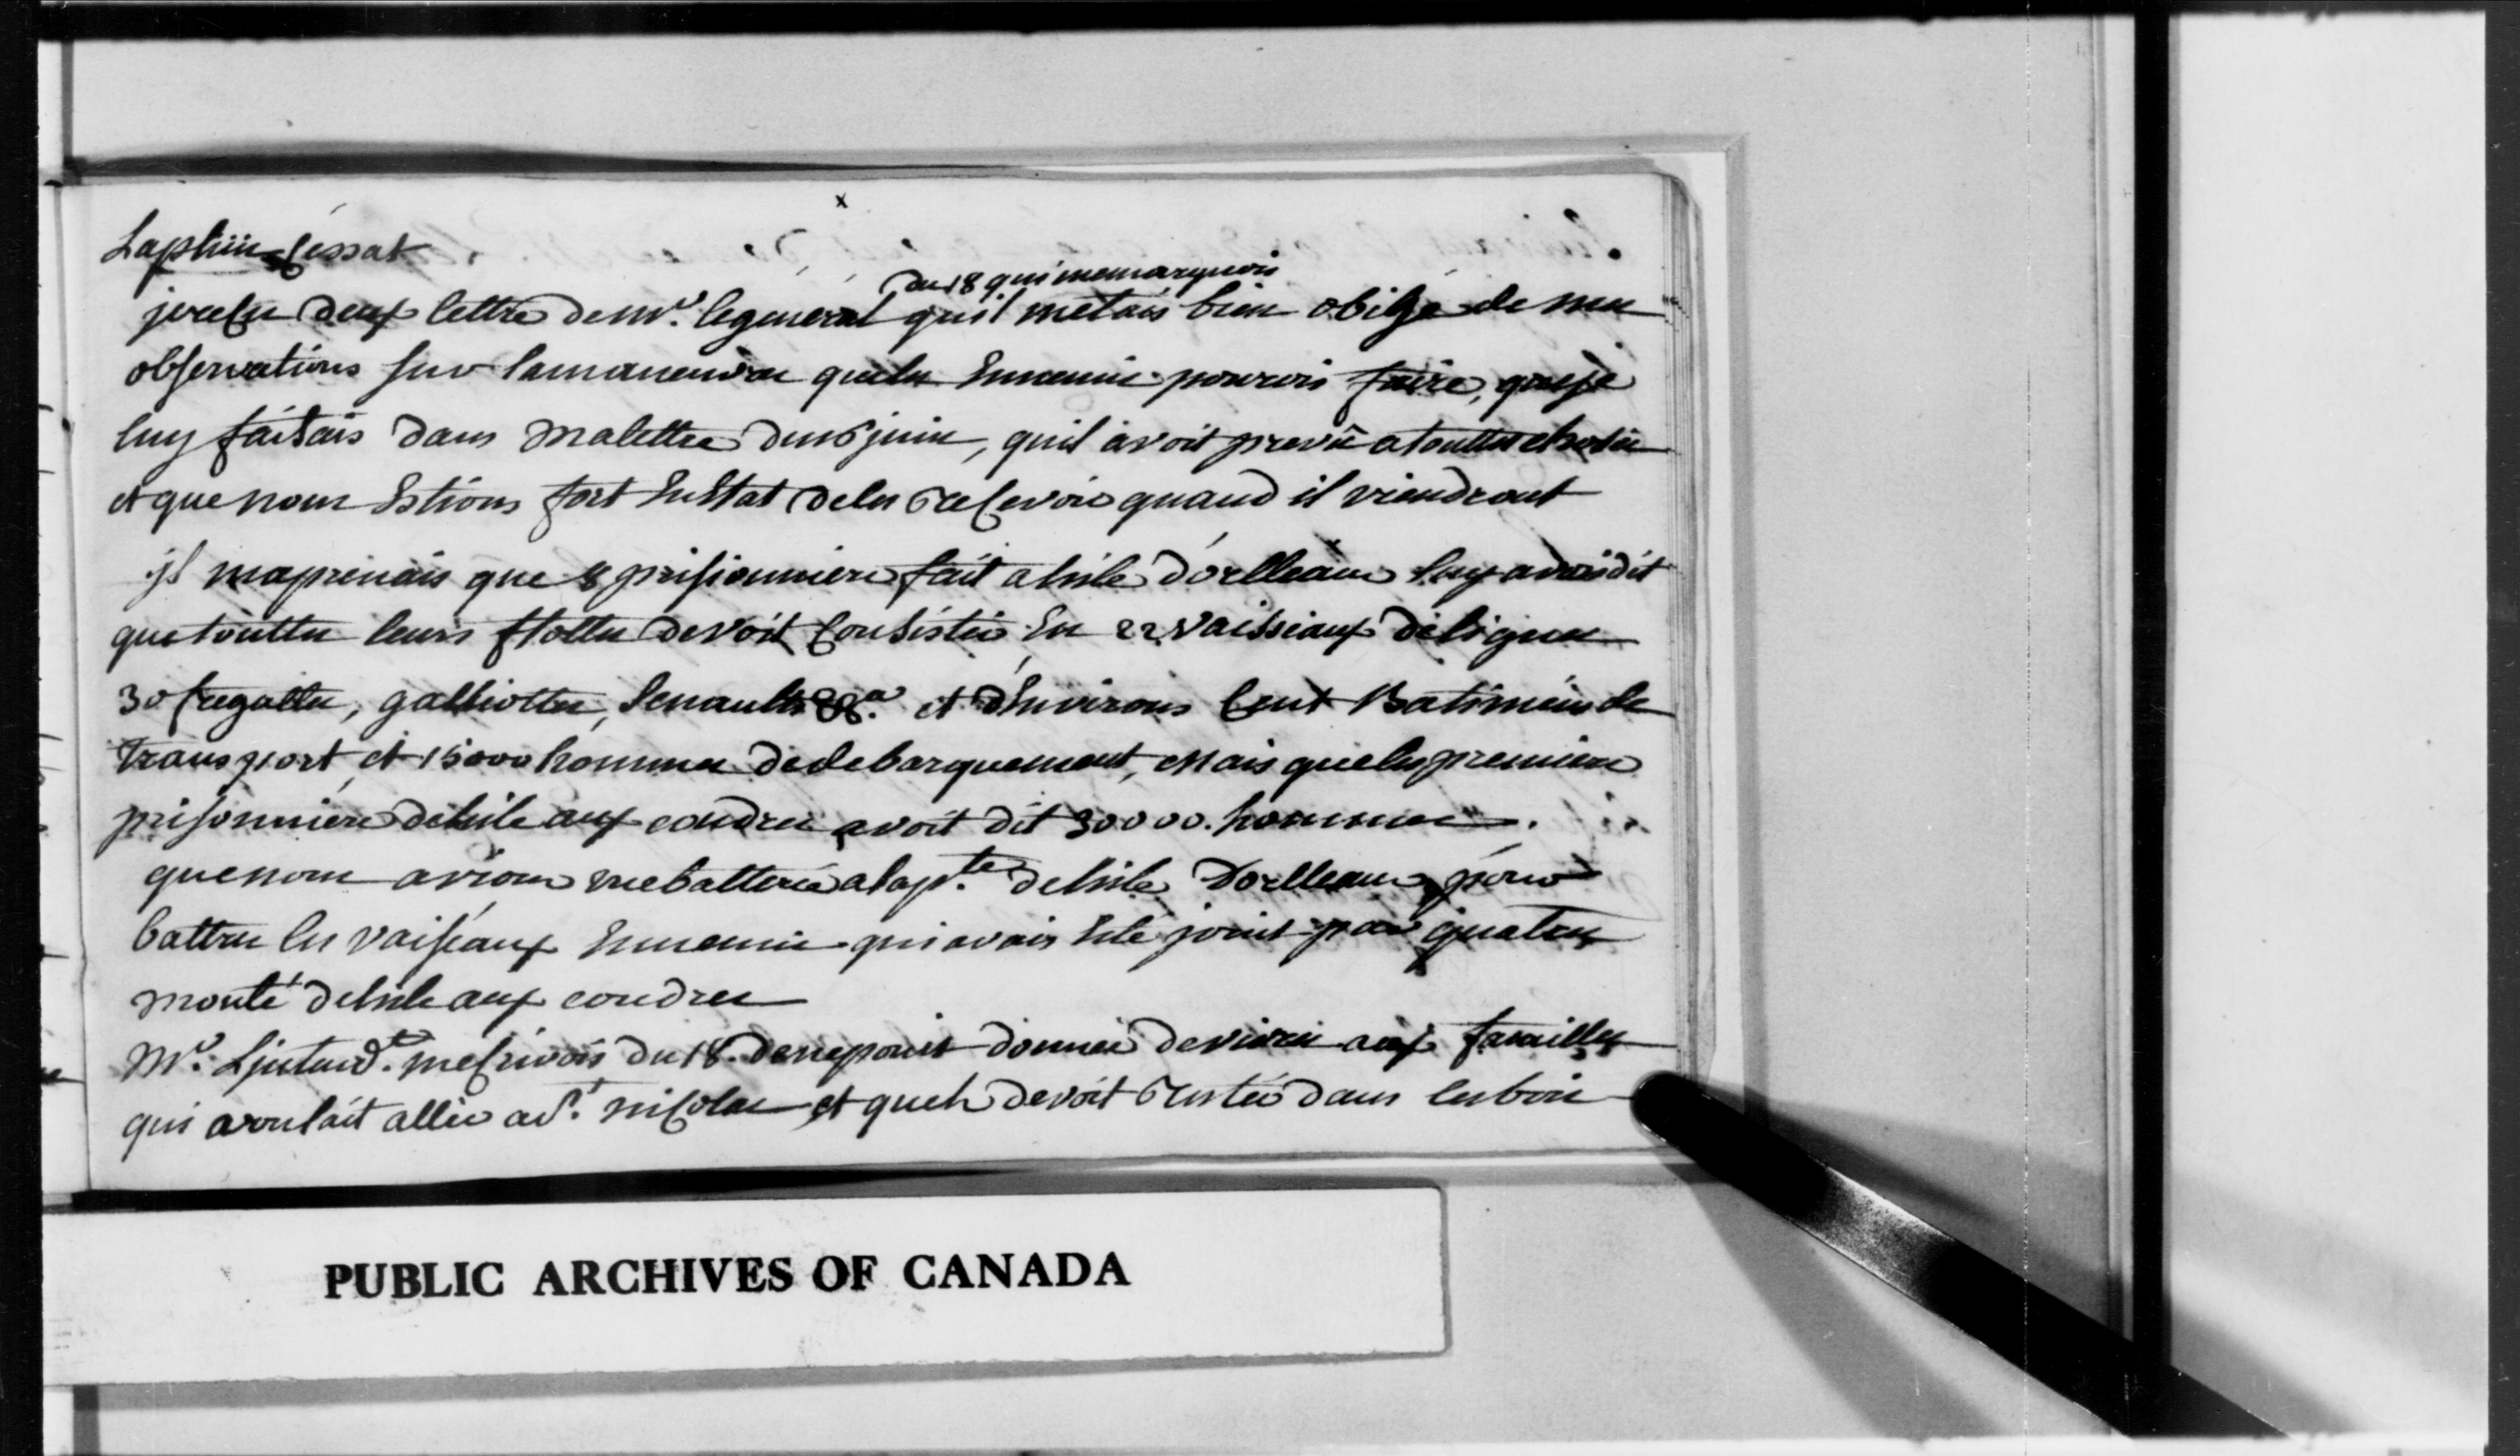 x
Lapluie Cessat
du 18 qui memarquois
jerecus deux lettre de mr. legeneral quil metais bien obligé de mes
observations sur lamaneuvre queles Ennemis pourois faire, queje
luy faisais dans malettre du 16 juin, quil avoit prevû atouttes choses
et que nous Estions fort En Etat deles recevoir quand il viendront
jl maprenais que 8 prisionniers fait a lisle dorlleans luy avois dit
que touttes leurs flottes devoit Consister En 22 vaissiaux deligne
30 fregattes, galliottes, Senaults &&a et d'Environs Cent Batiments de
transport et 15000 hommes dedebarquement, Mais queles premiers
prisonniers delisle aux coudres avoit dit 30000. hommes.
quenous avions une batterie alapte. delisle Dorlleans pour
battres les vaiseaux Ennemis qui avais Eté joint par quatres
monté delisle aux coudres
Mr. Ljntendt. mecrivois du 18. denepoint donner devivres aux familles
qui avoulait aller a st. nicolas et quels devoit rester dans lesbois
PUBLIC ARCHIVES OF CANADA